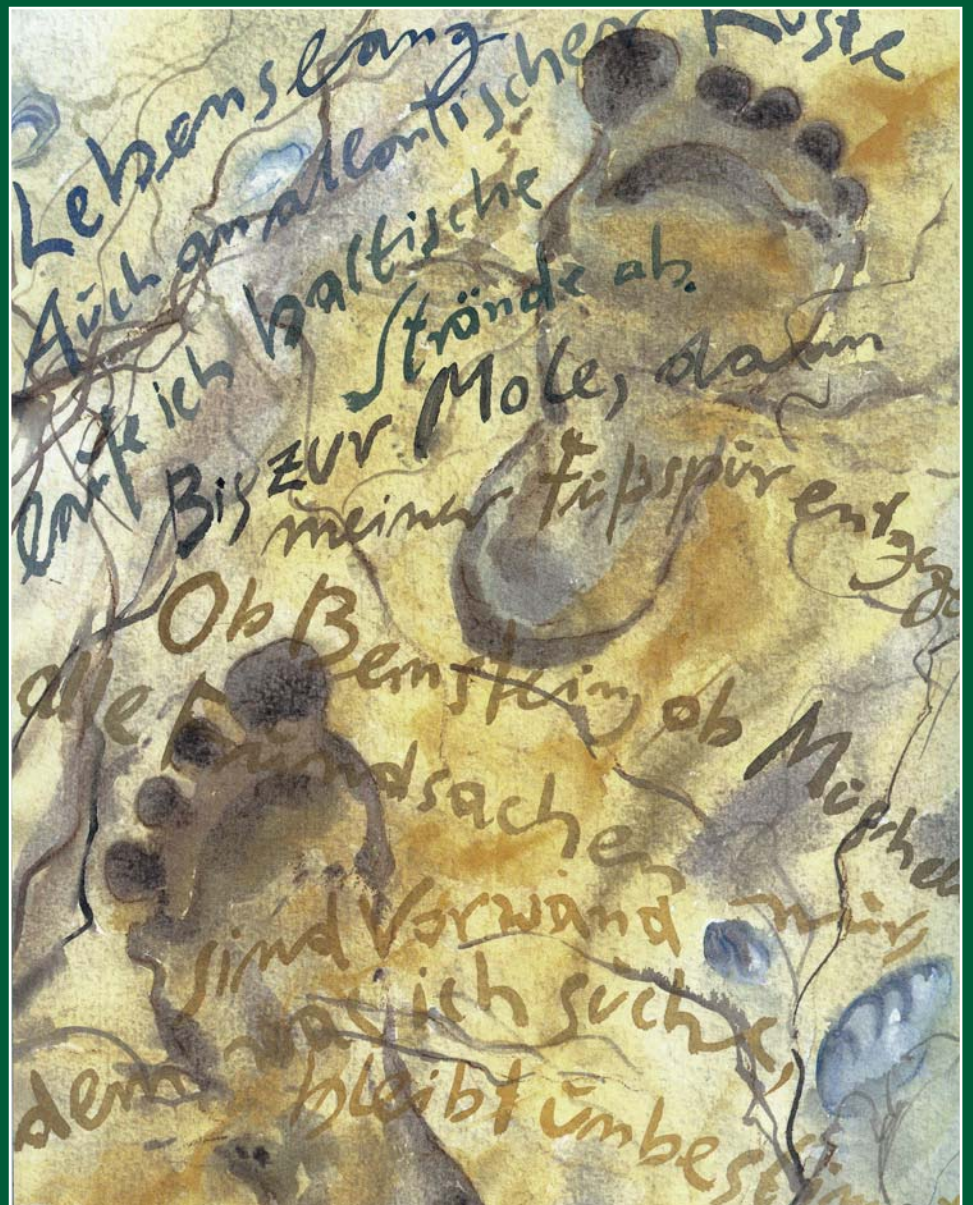 Lebenslang
Auch an atlantischer Küste
laufe ich baltische
Strände ab.
Bis zur Mole, dann
meiner Fußspur entgegen
Ob Bernstein, ob Muscheln
alle Fundsachen
sind Vorwand nur,
denn was ich suche,
bleibt unbestim